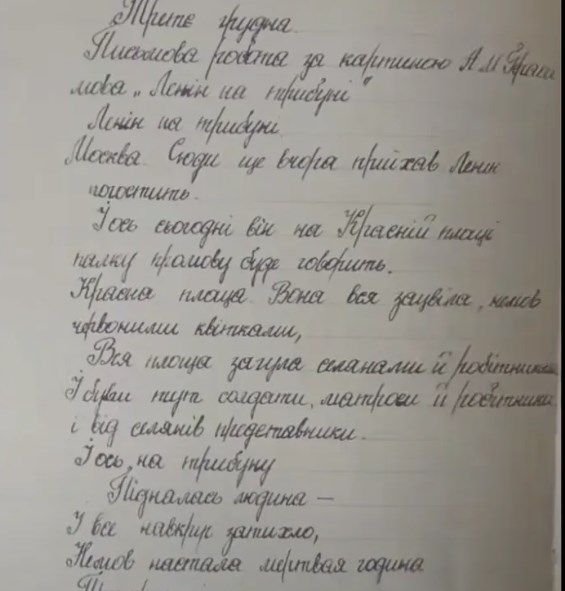 Трите грудня.
Письмова робота за картиною А М Гераси
мова „Ленін на трибуні"
Ленін на трибуні.
Москва. Сюди ще вчора приїхав Ленін
погостить.
І ось сьогодні він на Красній площі
палку промову буде говорить.
Красна площа. Вона вся зацвіла, немов
червоними квітками,
Вся площа загула селанами й робітниками
І були тут солдати, матроси й робітники
і від селянів представники.
І ось, на трибуну
Піднялась людина —
І все навкруг затихло,
Немов настала мертвая година